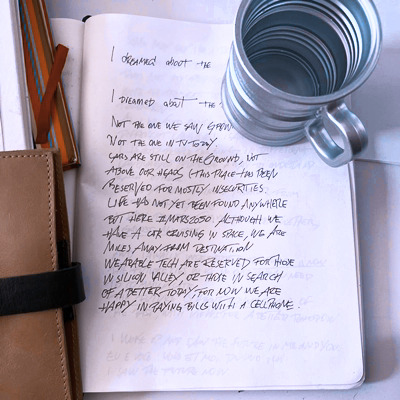 I dreamed about the
I dreamed about the
Not the one we saw grow
Not the one in TV today.
Cars are still on the ground, not
above our heads (this place has been
reserved for mostly insecurities.
Life has not yet been found anywhere
but here. Mars 2030. Although we
have a car cruising in space, we are
miles away from destination
Wearable tech are reserved for those
in Silicon Valley, or those in search
of a better today, for now we are
happy in paying bills with a cellphone.